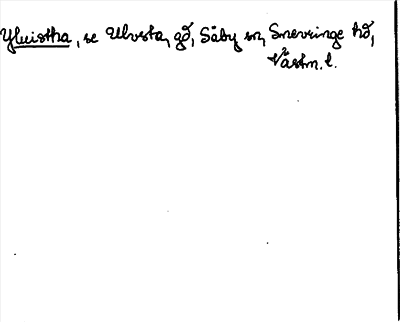 Yluistha, se Ulvsta, gd, Säby sn, Snevringe hd,
Västm. l.